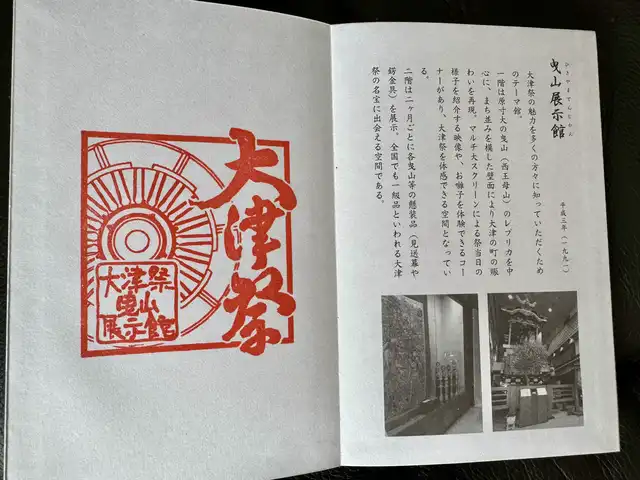 ひきやまてんじかん
曳山展示館
平成三年（一九九一）
大津祭の魅力を多くの方々に知っていただくため
のテーマ館。
一階は原寸大の曳山（西王母山）のレプリカを中
心に、まち並みを模した壁面により大津の町の賑
わいを再現。マルチ大スクリーンによる祭当日の
様子を紹介する映像や、お囃子を体験できるコー
ナーがあり、大津祭を体感できる空間となってい
る。
二階は二ヶ月ごとに各曳山等の懸装品（見送幕や
錺金具）を展示。全国でも一級品といわれる大津
祭の名宝に出会える空間である。
大津祭
大津祭
曳山
展示館